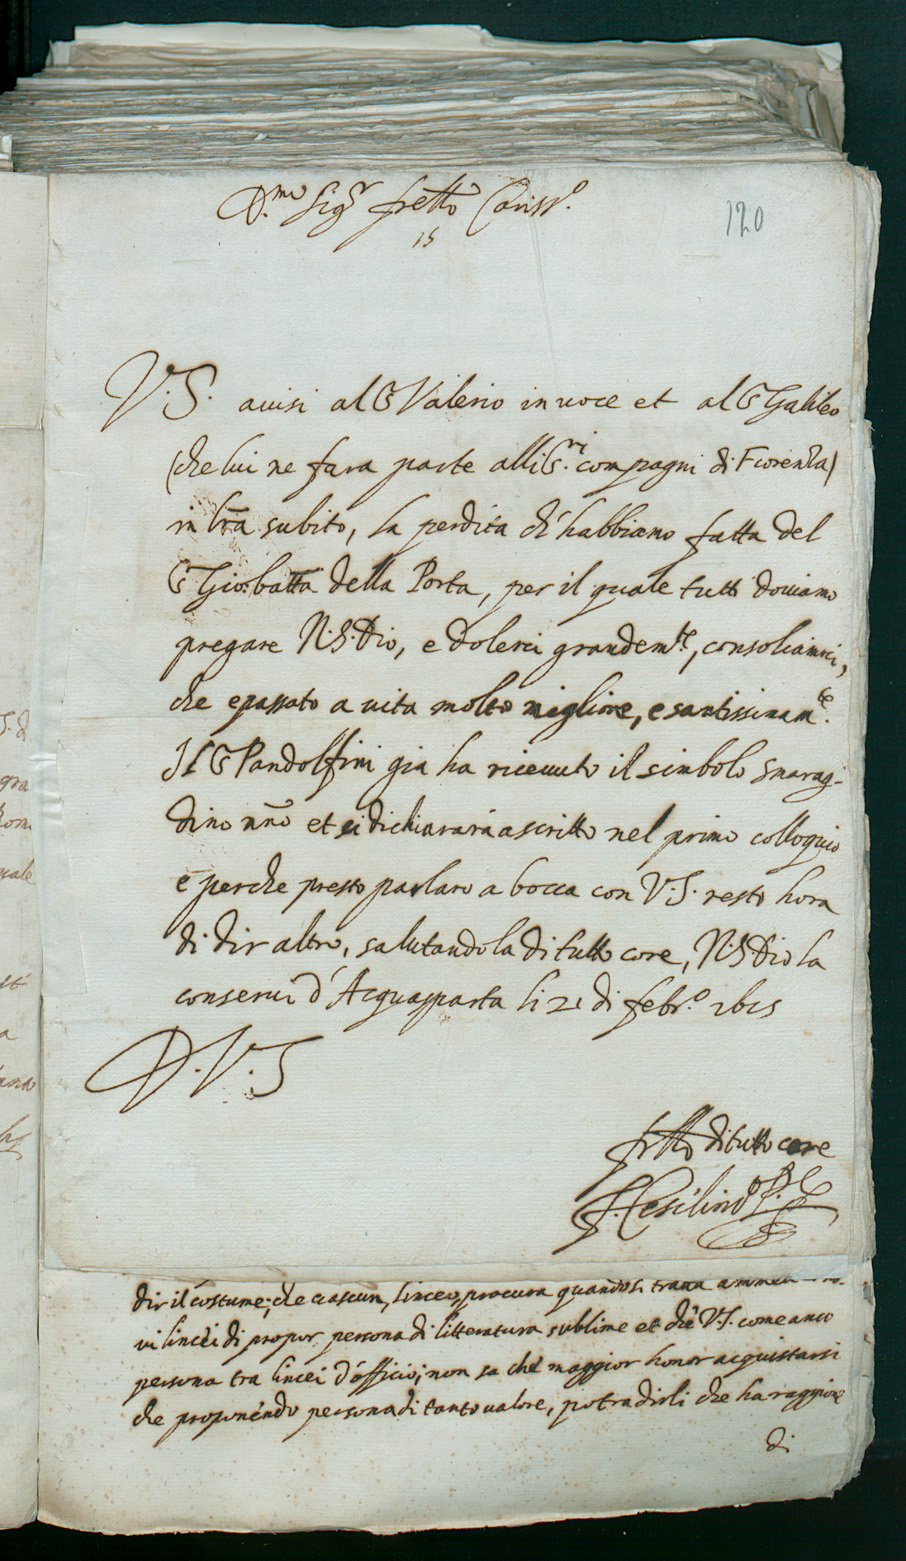 D.mo Sig.r fratello Cariss.o
15
120
V.S. avisi al S Valerio in voce et al S Galileo
(che lui ne farà parte alli S.ri compagni di Fiorenza)
in lra subito, la perdita ch'habbiamo fatta del
S Gio:batta della Porta, per il quale tutti doviamo
pregare N.S. Dio, e dolerci grandem.te, consoliamoci,
che è passato a vita molto migliore, e santissimam.te.
Il S Pandolfini già ha ricevuto il simbolo smarag-
dino nro et si dichiararà ascritto nel primo colloquio
e perche presto parlaro a bocca con V.S. resto hora
di dir altro, salutandola di tutto core, N.S. Dio la
conservi d'Acquasparta li 21 di febr.o 1615
D.V.S
frllo di tutto core
F. Cesi Linc.o P.
dir il costume, che ciascun linceo, procura quando si tratta
vi lincei di propor persona di litteratura sublime et che V.S. come anco
persona tra lincei d'officio, non sa che maggior honor acquistarsi
che proponendo persona di tanto valore, potra dirli che ha raggione
di